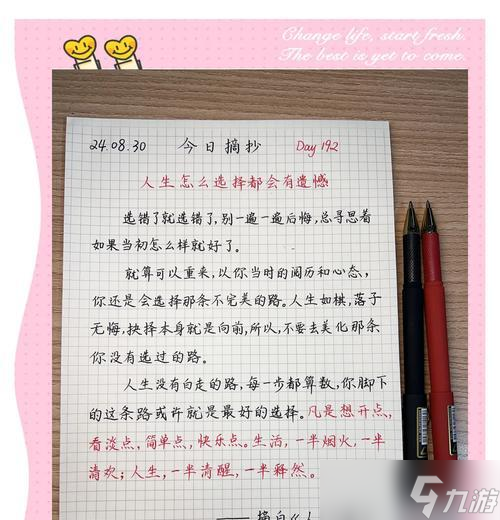 Change life, start fresh.
The best is yet to come.
24.08.30 今日摘抄 Day 192
人生怎么选择都会有遗憾
选错了就选错了，别一遍一遍后悔，总寻思着
如果当初怎么样就好了。
就算可以重来，以你当时的阅历和心态，
你还是会选择那条不完美的路。人生如棋，落子
无悔，抉择本身就是向前，所以，不要去美化那条
你没有选过的路。
人生没有白走的路，每一步都算数，你脚下
的这条路或许就是最好的选择。凡是想开点，
看淡点，简单点，快乐点。生活，一半烟火，一半
清欢；人生，一半清醒，一半释然。
——摘自《
九游